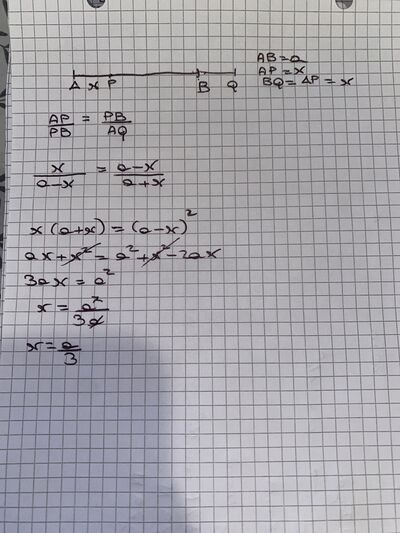 A x P B Q
AB = a
AP = x
BQ = AP = x
AP/PB = PB/AQ
x/(a-x) = (a-x)/(a+x)
x(a+x) = (a-x)²
ax + x² = a² + x² - 2ax
3ax = a²
x = a²/3a
x = a/3